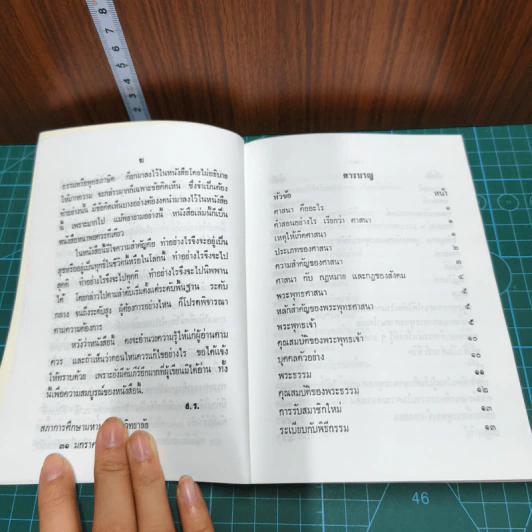 ฆ
ธรรมหรือพุทธภาษิต ก็ยกมาลงไว้ในหนังสือโดยไม่อธิบาย
ให้มากความ จะกล่าวมากก็เฉพาะข้อคิดเห็น ซึ่งจำเป็นต้อง
ทำอย่างนั้น มีข้อคิดเห็นบางอย่างต้องงดนำมาลงไว้ในหนังสือ
นี้ เพราะมากไป แม้พยายามอย่างนี้ หนังสือเล่มนี้ก็เป็น
หนังสือหนาพอควรทีเดียว
ในหนังสือนี้มีใจความสำคัญคือ ทำอย่างไรจึงจะอยู่เป็น
สุขหรืออยู่เป็นทุกข์ในชีวิตนี้หรือในโลกนี้ ทำอย่างไรจึงจะไป
สุคติ ทำอย่างไรจึงจะไปทุคติ ทำอย่างไรจึงจะไปนิพพาน
ได้ โดยกล่าวไปตามลำดับเริ่มตั้งแต่ระดับพื้นฐาน ระดับ
กลาง จนถึงระดับสูง ผู้ต้องการอย่างไหน ก็โปรดพิจารณา
ตามความต้องการ
หวังว่าหนังสือนี้ คงจะอำนวยความรู้ให้แก่ผู้อ่านตาม
ควร และถ้าเห็นว่าตอนไหนควรแก้ไขอย่างไร ขอได้แจ้ง
ให้ทราบด้วย เพราะยังมีคัมภีร์อีกมากที่ผู้เขียนมิได้อ่าน ทั้ง
นี้เพื่อความสมบูรณ์ของหนังสือนี้.
ส.ร.
สภาการศึกษามหา วิทยาลัย
๓๑ มกรา
สารบาญ
หัวข้อ หน้า
ศาสนา คืออะไร ๑
คำสอนอย่างไร เรียกว่า ศาสนา ๑
เหตุให้เกิดศาสนา ๑
ประเภทของศาสนา ๒
ความสำคัญของศาสนา ๓
ศาสนา กับ กฎหมาย และกฎของสังคม ๔
พระพุทธศาสนา ๔
หลักสำคัญของพระพุทธศาสนา ๕
พระพุทธเจ้า ๕
คุณสมบัติของพระพุทธเจ้า ๖
บุคคลตัวอย่าง ๑๐
พระธรรม ๑๑
คุณสมบัติของพระธรรม ๑๒
การรับสมาชิกใหม่ ๑๓
ระเบียบกับพิธีกรรม ๑๓
8
7
6
5
4
3
2
46